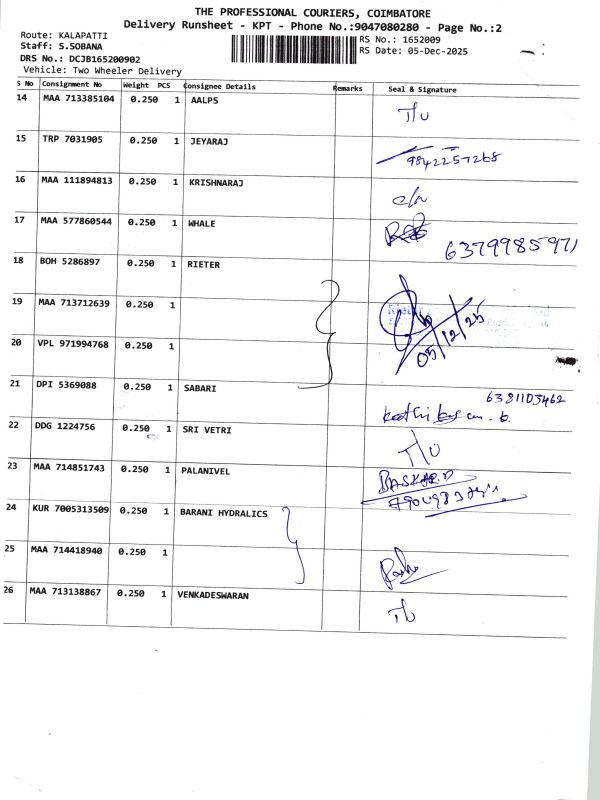 THE PROFESSIONAL COURIERS, COIMBATORE
Delivery Runsheet - KPT - Phone No.:9047080280 - Page No.:2
Route: KALAPATTI
RS No.: 1652009
Staff: S.SOBANA
RS Date: 05-Dec-2025
DRS No.: DCJB165200902
Vehicle: Two Wheeler Delivery
S No Consignment No Weight PCS Consignee Details Remarks Seal & Signature
14 MAA 713385104 0.250 1 AALPS T/U
15 TRP 7031905 0.250 1 JEYARAJ 9842257268
16 MAA 111894813 0.250 1 KRISHNARAJ
17 MAA 577860544 0.250 1 WHALE 6379985971
18 BOH 5286897 0.250 1 RIETER
19 MAA 713712639 0.250 1 05/12/25
20 VPL 971994768 0.250 1
21 DPI 5369088 0.250 1 SABARI 6381103462
22 DDG 1224756 0.250 1 SRI VETRI T/U
23 MAA 714851743 0.250 1 PALANIVEL BASKAR.D
24 KUR 7005313509 0.250 1 BARANI HYDRALICS
25 MAA 714418940 0.250 1
26 MAA 713138867 0.250 1 VENKADESWARAN T/U